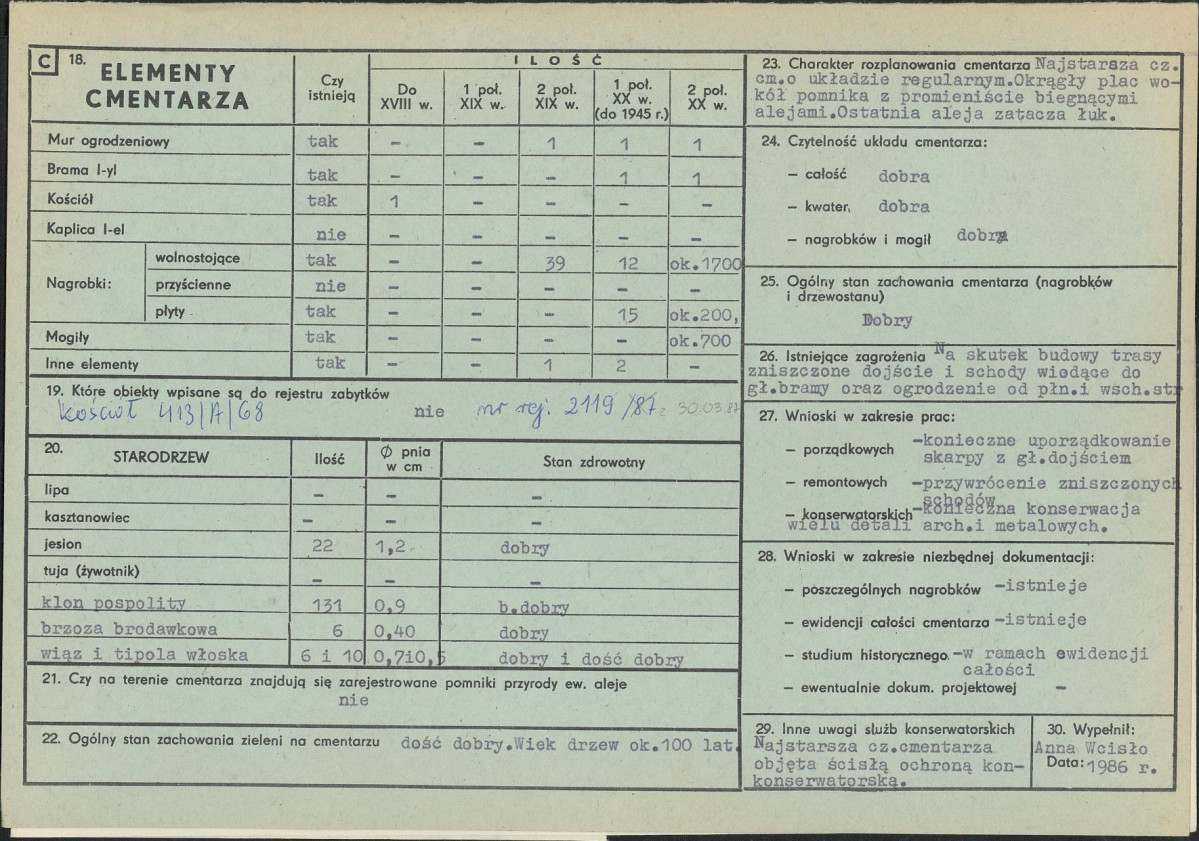 C 18. ELEMENTY CMENTARZA
Czy istnieją
ILOŚĆ
Do XVIII w.
1 poł. XIX w.
2 poł. XIX w.
1 poł. XX w. (do 1945 r.)
2 poł. XX w.
Mur ogrodzeniowy tak – – 1 1 1
Brama I-yl tak – – – 1 1
Kościół tak 1 – – – –
Kaplica I-el nie – – – – –
Nagrobki:
wolnostojące tak – – 39 12 ok.1700
przyścienne nie – – – – –
płyty tak – – – 15 ok.200,
Mogiły tak – – – – ok.700
Inne elementy tak – – 1 2 –
19. Które obiekty wpisane są do rejestru zabytków
kościół 413/A/68 nie nr rej. 2119/87 z 30.03.87
20. STARODRZEW Ilość Ø pnia w cm Stan zdrowotny
lipa – – –
kasztanowiec – – –
jesion 22 1,2 dobry
tuja (żywotnik) – – –
klon pospolity 131 0,9 b.dobry
brzoza brodawkowa 6 0,40 dobry
wiąz i tipola włoska 6 i 10 0,7i0,5 dobry i dość dobry
21. Czy na terenie cmentarza znajdują się zarejestrowane pomniki przyrody ew. aleje
nie
22. Ogólny stan zachowania zieleni na cmentarzu dość dobry.Wiek drzew ok.100 lat.
23. Charakter rozplanowania cmentarza Najstarsza cz.
cm.o układzie regularnym.Okrągły plac wo-
kół pomnika z promieniście biegnącymi
alejami.Ostatnia aleja zatacza łuk.
24. Czytelność układu cmentarza:
– całość dobra
– kwater, dobra
– nagrobków i mogił dobra
25. Ogólny stan zachowania cmentarza (nagrobków
i drzewostanu)
Dobry
26. Istniejące zagrożenia Na skutek budowy trasy
zniszczone dojście i schody wiodące do
gł.bramy oraz ogrodzenie od płn.i wsch.str
27. Wnioski w zakresie prac:
– porządkowych -konieczne uporządkowanie
skarpy z gł.dojściem
– remontowych -przywrócenie zniszczonych
schodów
– konserwatorskich -konieczna konserwacja
wielu detali arch.i metalowych.
28. Wnioski w zakresie niezbędnej dokumentacji:
– poszczególnych nagrobków -istnieje
– ewidencji całości cmentarza -istnieje
– studium historycznego. -w ramach ewidencji
całości
– ewentualnie dokum. projektowej –
29. Inne uwagi służb konserwatorskich
Najstarsza cz.cmentarza
objęta ścisłą ochroną kon-
konserwatorską.
30. Wypełnił:
Anna Wcisło
Data: 1986 r.